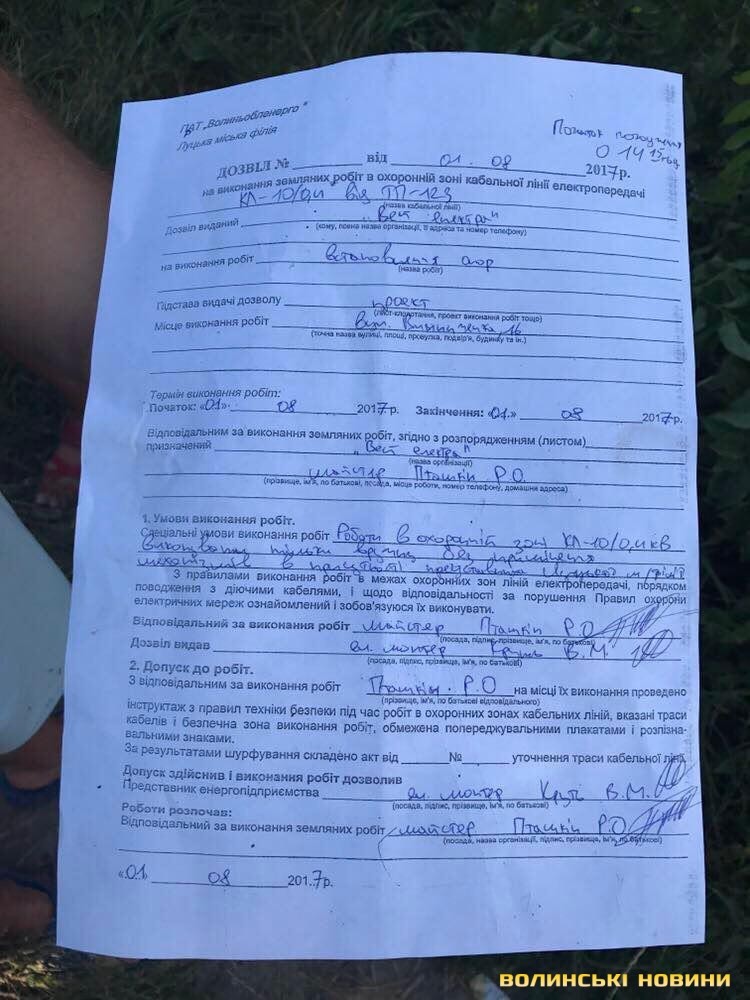 ПАТ „Волиньобленерго"
Луцька міська філія
Початок
о 14 15 год
ДОЗВІЛ № від 01.08 2017р.
на виконання земляних робіт в охоронній зоні кабельної лінії електропередачі
КЛ-10/0,4 від ТП-123
(назва кабельної лінії)
Дозвіл виданий „Вест електра"
(кому, повна назва організації, її адреса та номер телефону)
на виконання робіт встановлення опор
(назва робіт)
Підстава видачі дозволу проект
(лист-клопотання, проект виконання робіт тощо)
Місце виконання робіт вул. Винниченка, 16
(точна назва вулиці, площі, провулка, подвір'я, будинку та ін.)
Термін виконання робіт:
Початок: «01» 08 2017р. Закінчення: «01.» 08 2017р.
Відповідальним за виконання земляних робіт, згідно з розпорядженням (листом)
призначений „Вест електра"
(назва організації)
майстер Пташкін Р.О.
(прізвище, ім'я, по батькові, посада, місце роботи, номер телефону, домашня адреса)
1. Умови виконання робіт.
Спеціальні умови виконання робіт Роботи в охоронній зоні КЛ-10/0,4 кВ
виконувати тільки вручну без
механізмів в присутності представника м/філії
З правилами виконання робіт в межах охоронних зон ліній електропередачі, порядком
поводження з діючими кабелями, і щодо відповідальності за порушення Правил охорони
електричних мереж ознайомлений і зобов'язуюся їх виконувати.
Відповідальний за виконання робіт майстер Пташкін Р.О
(посада, підпис, прізвище, ім'я, по батькові)
Дозвіл видав ел. монтер В.М.
(посада, підпис, прізвище, ім'я, по батькові)
2. Допуск до робіт.
З відповідальним за виконання робіт Пташкін. Р.О на місці їх виконання проведено
(прізвище, ім'я, по батькові відповідального)
інструктаж з правил техніки безпеки під час робіт в охоронних зонах кабельних ліній, вказані траси
кабелів і безпечна зона виконання робіт, обмежена попереджувальними плакатами і розпізна-
вальними знаками.
За результатами шурфування складено акт від № уточнення траси кабельної лінії.
Допуск здійснив і виконання робіт дозволив
Представник енергопідприємства ел. монтер В.М.
(посада, підпис, прізвище, ім'я, по батькові)
Роботи розпочав:
Відповідальний за виконання земляних робіт майстер Пташкін Р.О
(посада, назва організації, підпис, прізвище, ім'я, по батькові)
«01» 08 2017р.
ВОЛИНСЬКІ НОВИНИ